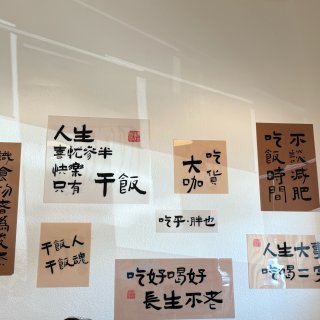 識食物者為俊傑
人生
喜忧參半
快樂
只有 干飯
吃貨
大咖
不談減肥
吃飯時間
吃乎·胖也
干飯人
干飯魂
吃好喝好
長生不老
人生大事
吃喝二字